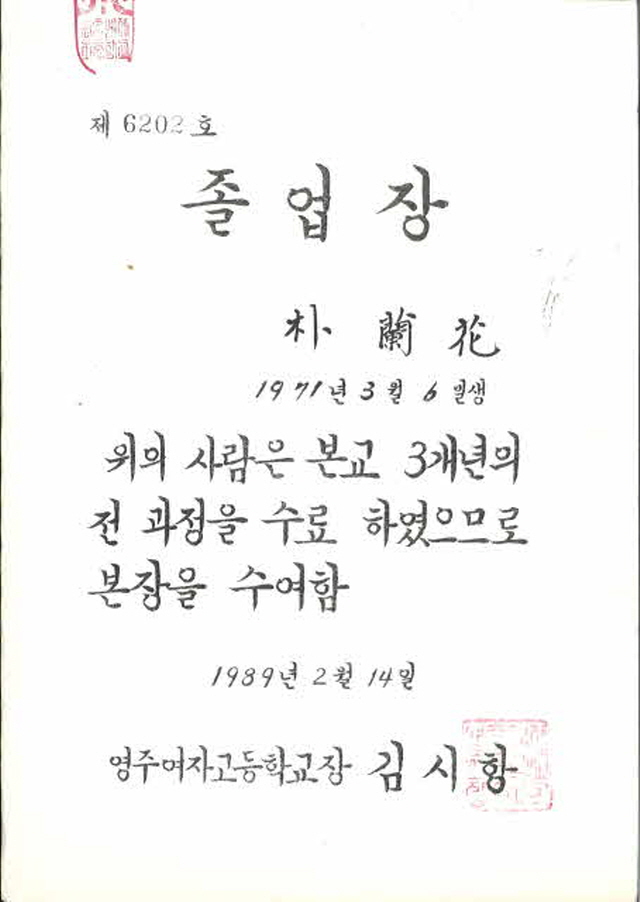 제 6202 호
졸업장
朴蘭花
1971년 3월 6일생
위의 사람은 본교 3개년의
전 과정을 수료 하였으므로
본장을 수여함
1989년 2월 14일
영주여자고등학교장 김시항